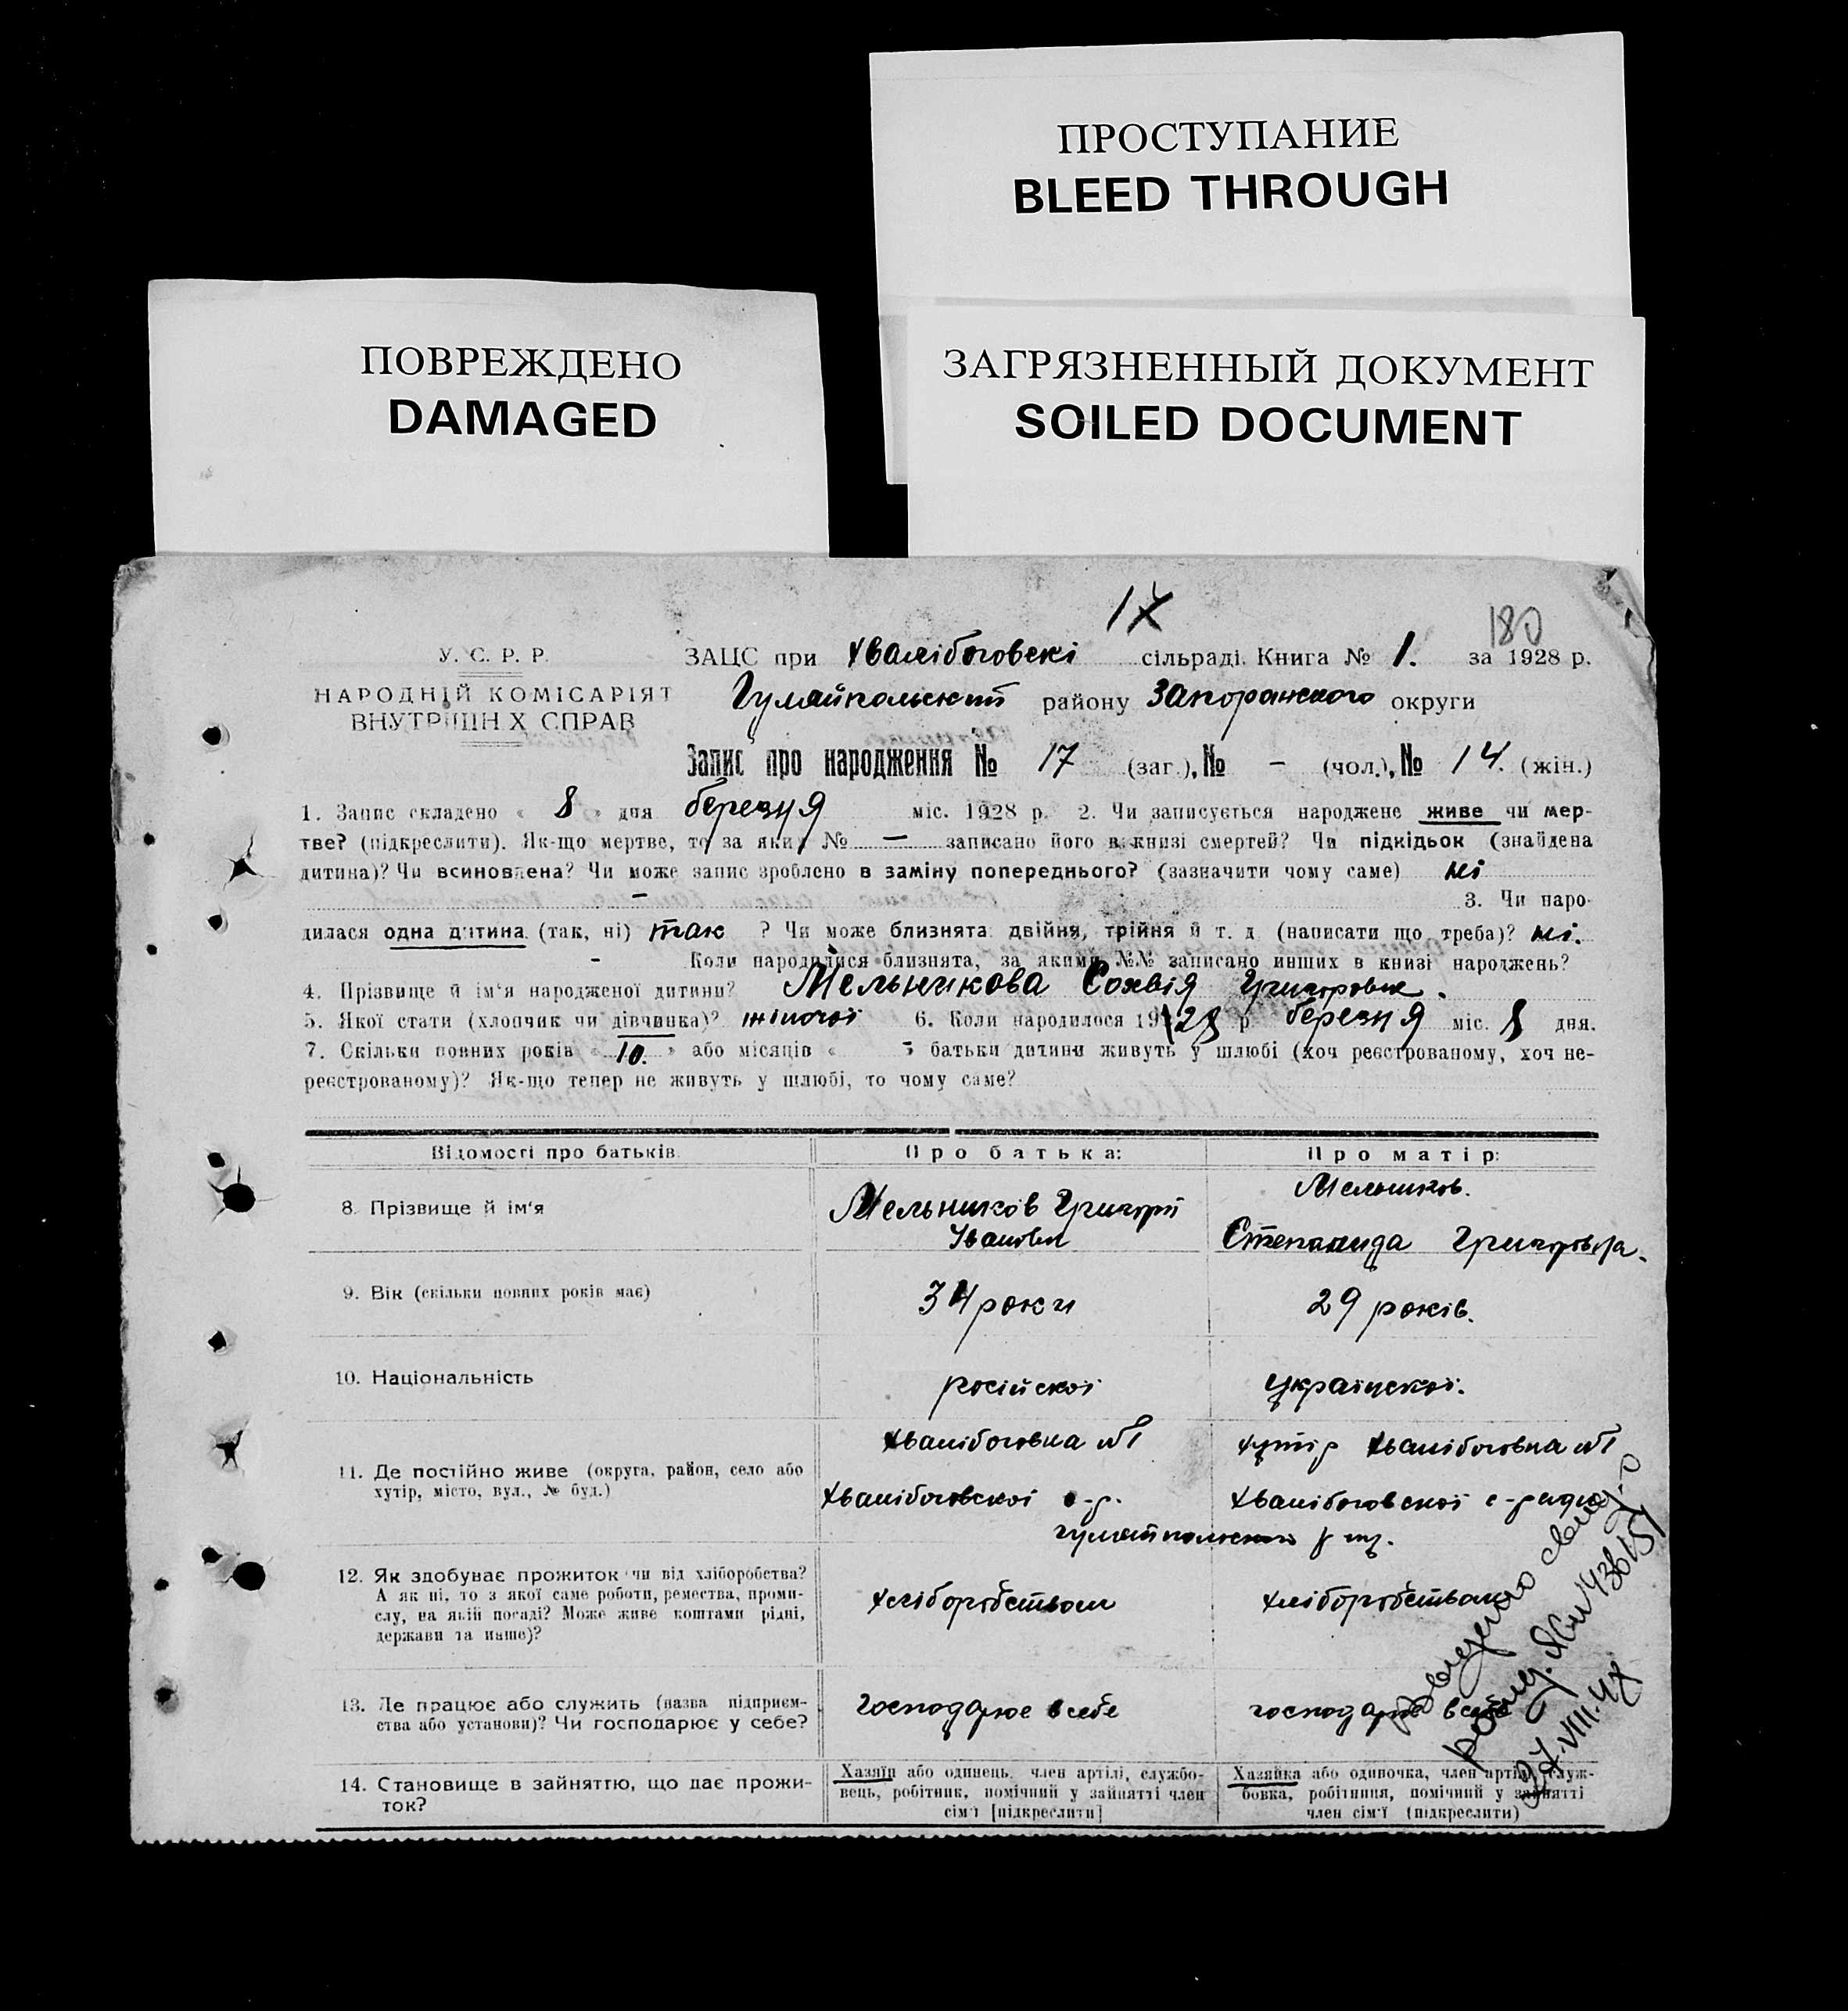 ПРОСТУПАНИЕ
BLEED THROUGH
ПОВРЕЖДЕНО
DAMAGED
ЗАГРЯЗНЕННЫЙ ДОКУМЕНТ
SOILED DOCUMENT
180
У. С. Р. Р.
НАРОДНІЙ КОМІСАРІЯТ
ВНУТРІШНІХ СПРАВ
ЗАЦС при Хвалібоговскі сільраді. Книга № 1. за 1928 р.
Гуляйпольський району Запоріжского округи
Запис про народження № 17 (заг.), № - (чол.), № 14. (жін.)
1. Запис складено « 8 » дня березня міс. 1928 р. 2. Чи записується народжене живе чи мер-
тве? (підкреслити). Як-що мертве, то за яким № — записано його в книзі смертей? Чи підкідьок (знайдена
дитина)? Чи всиновлена? Чи може запис зроблено в заміну попереднього? (зазначити чому саме) ні
- 3. Чи наро-
дилася одна дитина (так, ні) так ? Чи може близнята: двійня, трійня й т. д. (написати що треба)? ні.
- Коли народилися близнята, за якими №№ записано инших в книзі народжень?
4. Прізвище й ім'я народженої дитини? Мельникова Сохвія Григоровна.
5. Якої стати (хлопчик чи дівчинка)? жіночої 6. Коли народилося 1928 р. березня міс. 8 дня.
7. Скільки повних років « 10. » або місяців « » батьки дитини живуть у шлюбі (хоч реєстрованому, хоч не-
реєстрованому)? Як-що тепер не живуть у шлюбі, то чому саме?
Відомості про батьків Про батька: Про матір:
8. Прізвище й ім'я
Мельников Григорій
Іванович
Мельников.
Степанида Григоровна.
9. Вік (скільки повних років має) 34 роки 29 років.
10. Національність російскої українскої.
11. Де постійно живе (округа, район, село або
хутір, місто, вул., № буд.)
Хвалібоговка №1
Хвалібоговскої с-р.
хутір Хвалібоговка №1
Хвалібоговскої с-ради
12. Як здобуває прожиток чи від хліборобства?
А як ні, то з якої саме роботи, ремества, проми-
слу, на якій посаді? Може живе коштами рідні,
держави та инше)?
хліборобством
хліборобством
13. Де працює або служить (назва підприєм-
ства або установи)? Чи господарює у себе?
господарює в себе
господарює в себе
14. Становище в зайняттю, що дає прожи-
ток?
Хазяїн або одинець, член артілі, службо-
вець, робітник, помічний у зайнятті член
сім'ї [підкреслити]
Хазяйка або одиночка, член артілі, служ-
бовка, робітниця, помічний у зайнятті
член сім'ї (підкреслити)
27.VIII.47